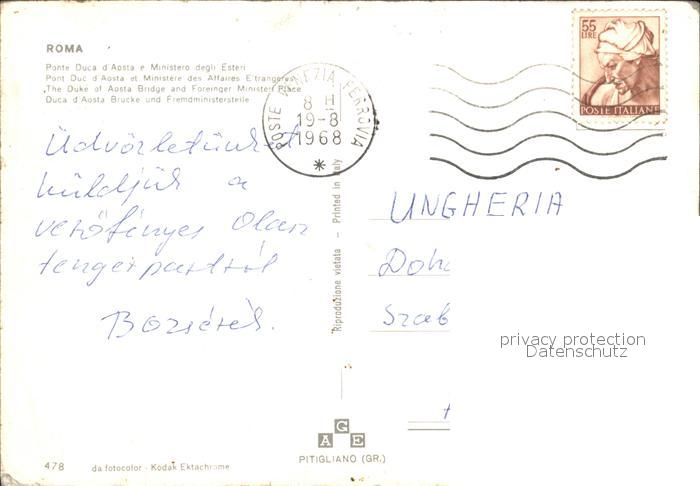 ROMA
Ponte Duca d'Aosta e Ministero degli Esteri
Pont Duc d'Aosta et Ministère des Affaires E'trangeres
The Duke of Aosta Bridge and Foreinger Minister Place
Duca d'Aosta Brucke und Fremdministerstelle
POSTE VENEZIA FERROVIA
8 H
19-8
1968
55
LIRE
POSTE ITALIANE
Üdvözletünket
küldjük a
verőfényes Olasz
tengerpartról
UNGHERIA
Doh
Szab
privacy protection
Datenschutz
Riproduzione vietata - Printed in Italy
AGE
PITIGLIANO (GR.)
478 da fotocolor - Kodak Ektachrome